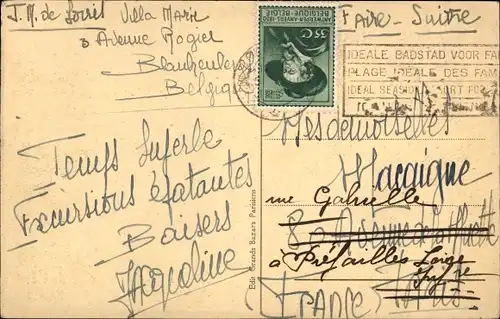 J. M. de Loisel Villa Marie
3 Avenue Rogier
Blankenberghe
Belgique
Temps superbe
Excursions épatantes
Baisers
Jacqueline
Edit. Grands Bazars Parisiens
Faire - Suivre
ANTWERPEN-ANVERS-1930
BELGIQUE-BELGIË
35 C
IDEALE BADSTAD VOOR FA
PLAGE IDEALE DES FAM
IDEAL SEASIDE RESORT FOR
Mesdemoiselles
Macaigne
rue Gabrielle
8 Avenue
à Préfailles Loire
Infre
Paris
(France)